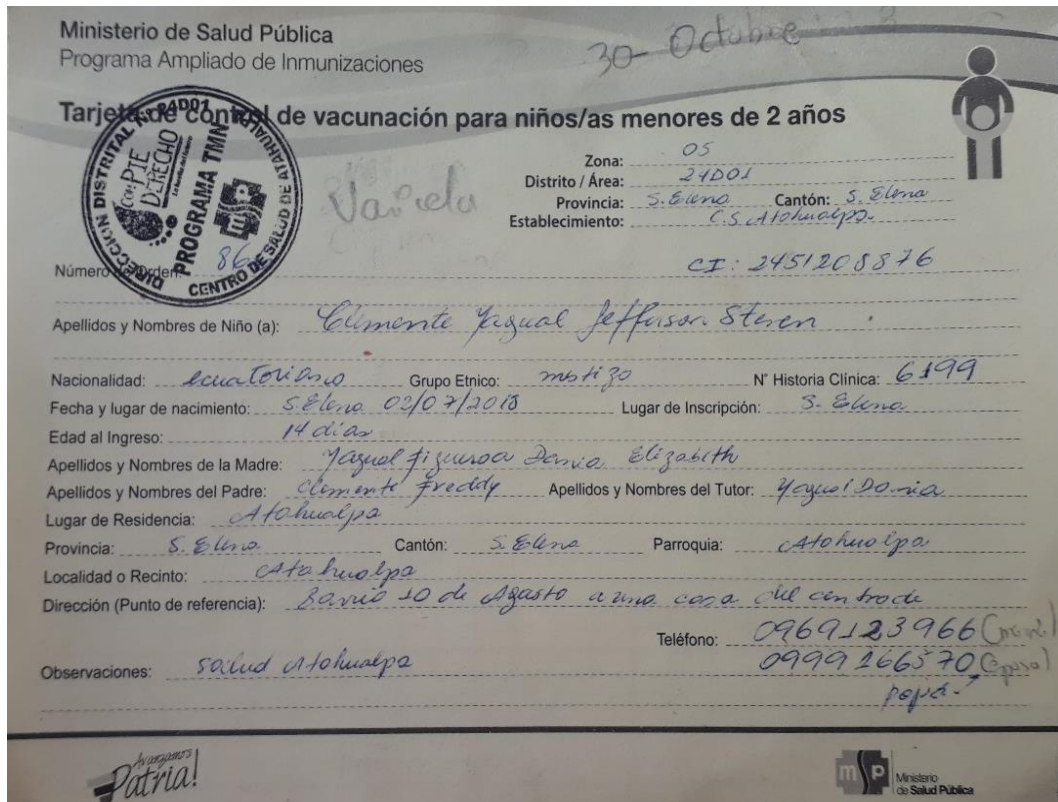 Ministerio de Salud Pública
Programa Ampliado de Inmunizaciones
30- Octubre
Tarjeta de control de vacunación para niños/as menores de 2 años
DIRECCIÓN DISTRITAL N° 24D01
CENTRO DE SALUD DE ATAHUALPA
con PIE DERECHO
PROGRAMA TMN
Varicela
Zona: 05
Distrito / Área: 24D01
Provincia: S. Elena Cantón: S. Elena
Establecimiento: C.S Atahualpa
Número de Orden: 86
CI: 2451208876
Apellidos y Nombres de Niño (a): Clemente Yagual Jefferson Steven
Nacionalidad: ecuatoriano Grupo Etnico: mestizo N° Historia Clínica: 6199
Fecha y lugar de nacimiento: S. Elena 02/07/2018 Lugar de Inscripción: S. Elena
Edad al Ingreso: 14 dias
Apellidos y Nombres de la Madre: Yagual Figueroa Dania Elizabeth
Apellidos y Nombres del Padre: Clemente Freddy Apellidos y Nombres del Tutor: Yagual Dania
Lugar de Residencia: Atahualpa
Provincia: S. Elena Cantón: S. Elena Parroquia: Atahualpa
Localidad o Recinto: Atahualpa
Dirección (Punto de referencia): Barrio 10 de Agosto a una casa del centro de
Teléfono: 0969123966
Observaciones: salud Atahualpa 0999166570
papá
Avanzamos Patria!
msp Ministerio de Salud Pública